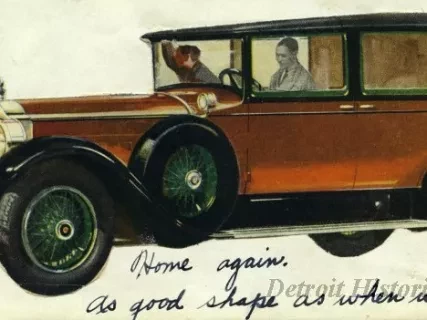 Home again.
Detroit Histori
As good shape as when w